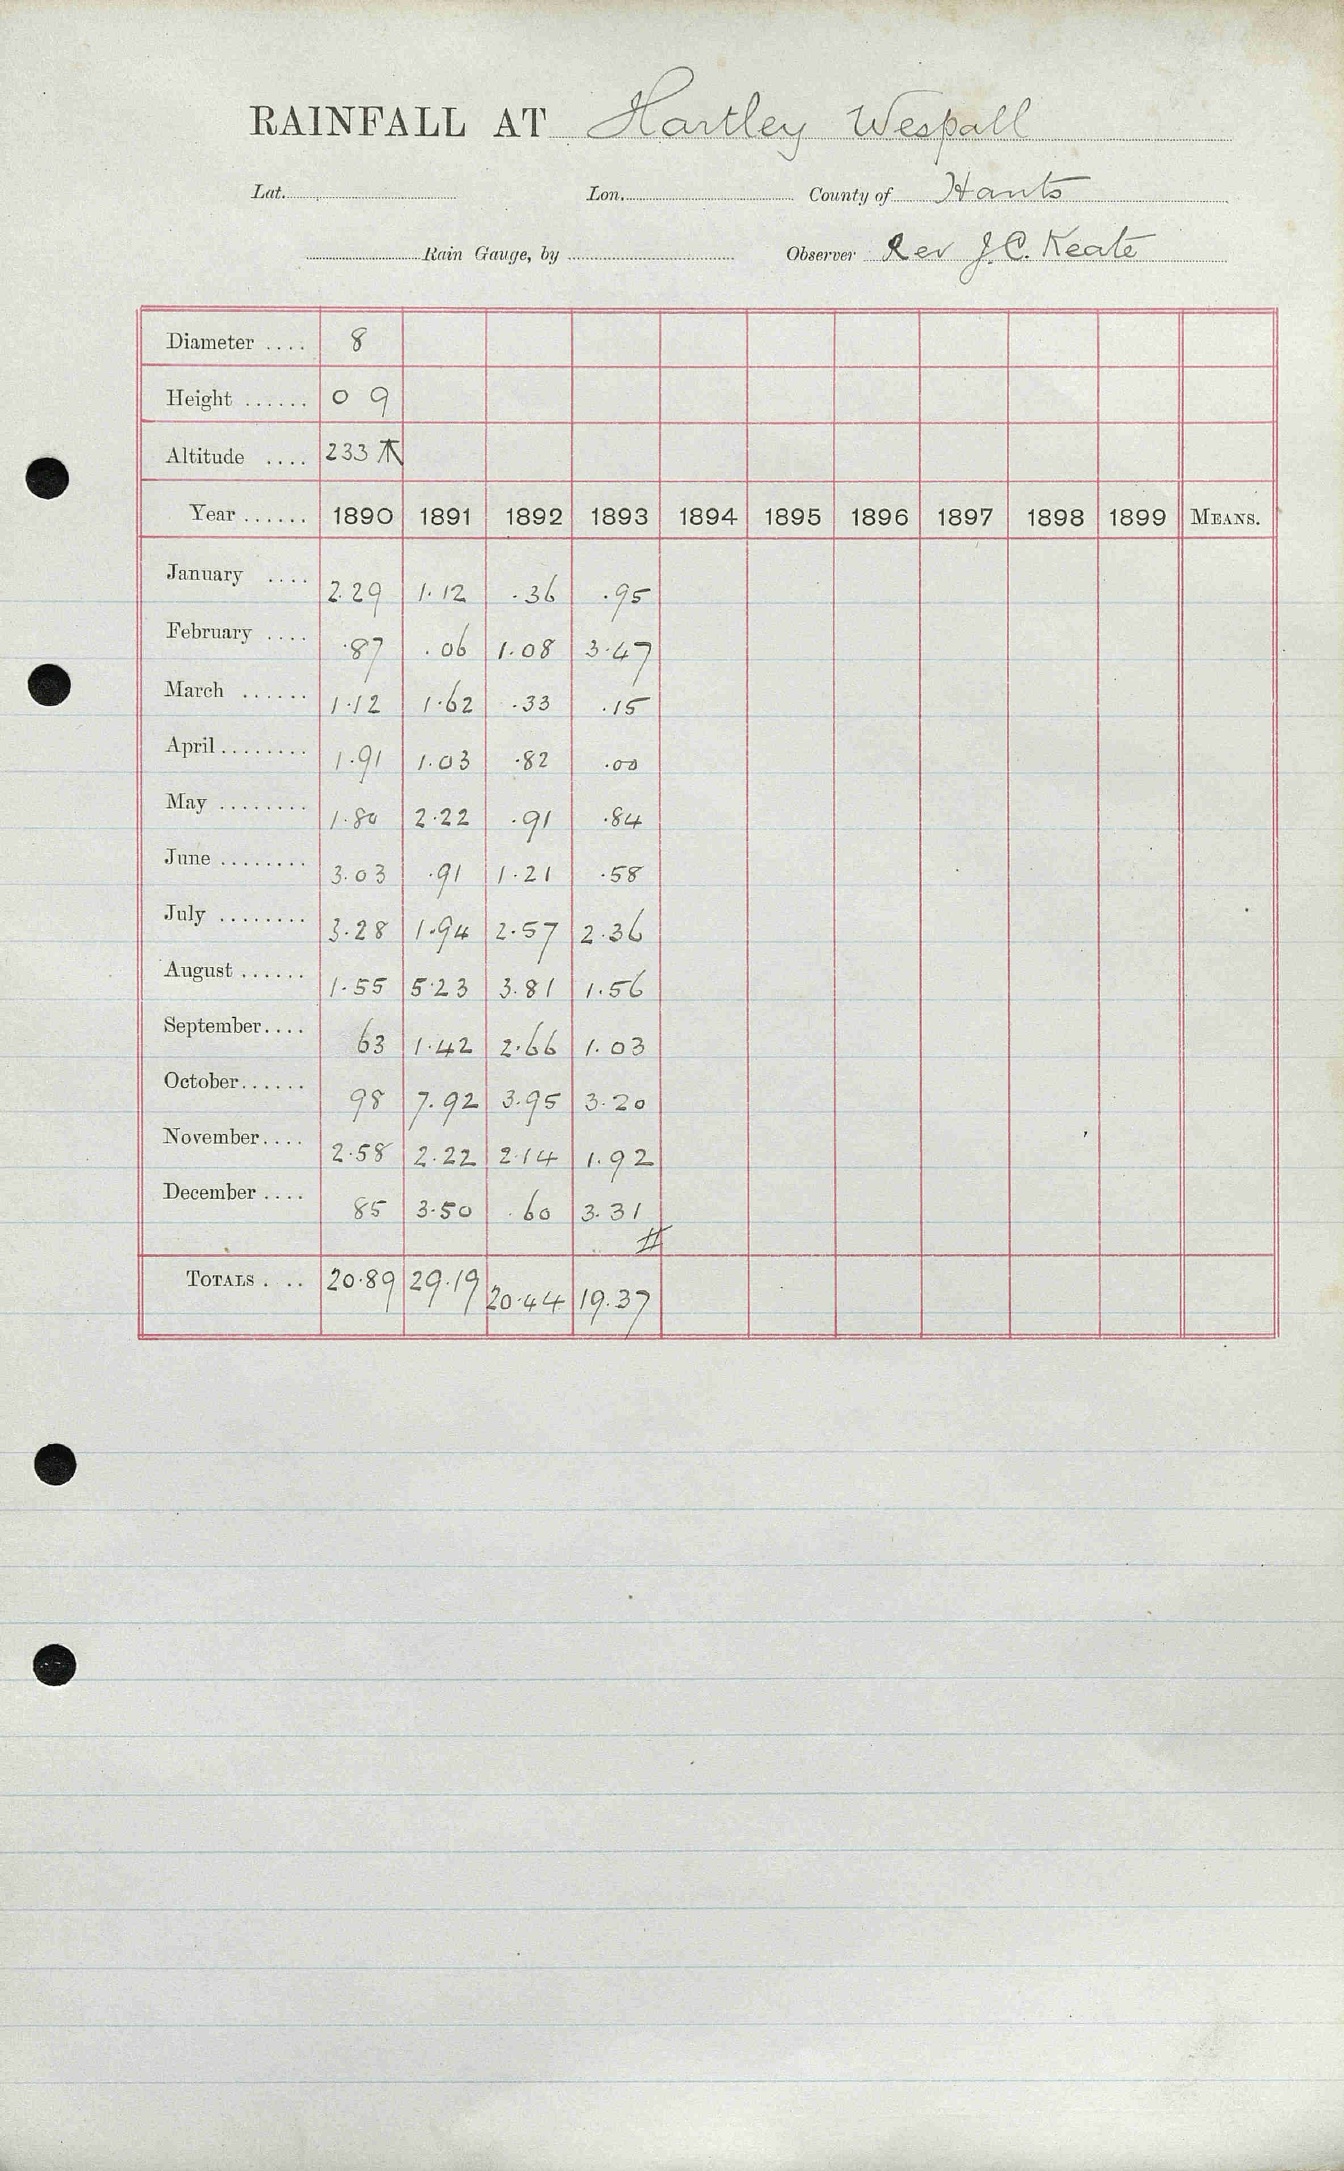 RAINFALL AT Hartley Wespall
Lat. Lon. County of Hants
Rain Gauge, by Observer Rev J.C. Keate
Diameter .... 8
Height ...... 0 9
Altitude .... 233
Year ...... 1890 1891 1892 1893 1894 1895 1896 1897 1898 1899 MEANS.
January .... 2.29 1.12 .36 .95
February .... .87 .06 1.08 3.47
March ...... 1.12 1.62 .33 .15
April ........ 1.91 1.03 .82 .00
May ........ 1.80 2.22 .91 .84
June ........ 3.03 .91 1.21 .58
July ........ 3.28 1.94 2.57 2.36
August ...... 1.55 5.23 3.81 1.56
September.... 63 1.42 2.66 1.03
October...... 98 7.92 3.95 3.20
November.... 2.58 2.22 2.14 1.92
December .... 85 3.50 .60 3.31
#
TOTALS . .. 20.89 29.19 20.44 19.37